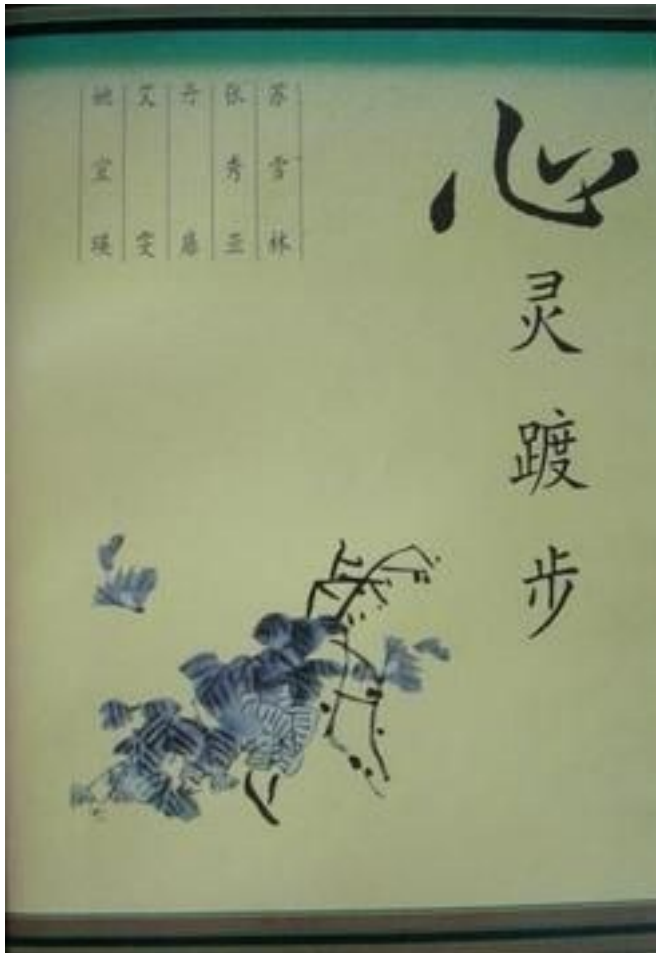 心灵踱步
苏雪林
张秀亚
丹扉
艾雯
姚宜瑛